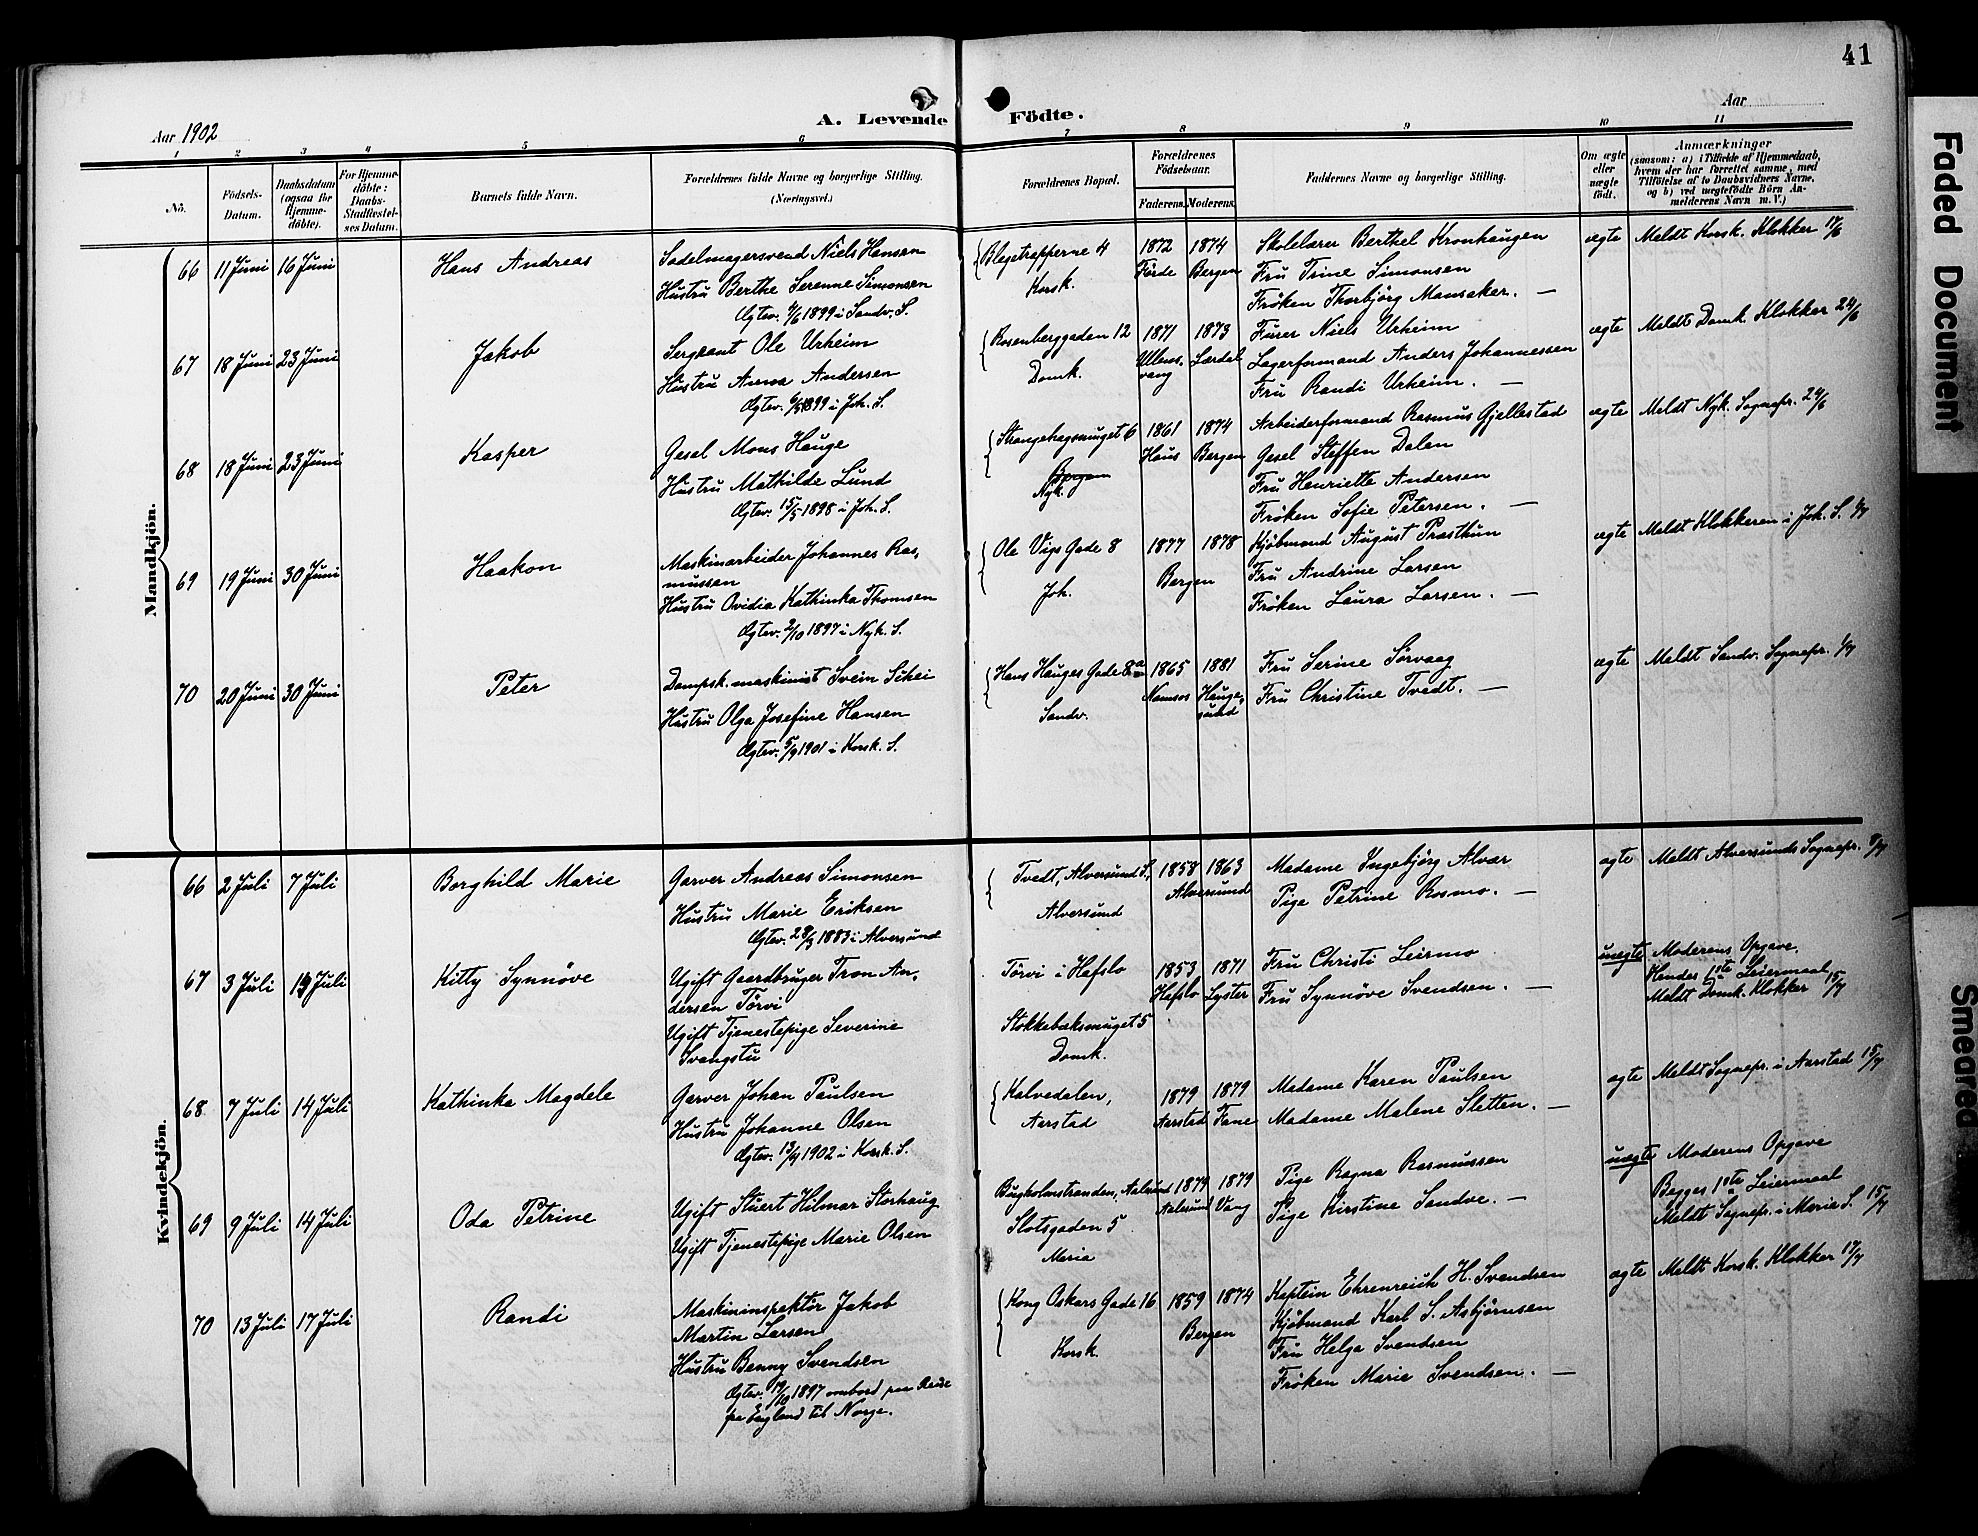 41
A. Levende Födte.
Aar 1902
Aar
1 2 3 4 5 6 7 8 9 10 11
No.
Födsels-Datum.
Daabsdatum (ogsaa for Hjemme-döbte).
For Hjemme-döbte: Daabs-Stadfæstel-ses Datum.
Barnets fulde Navn.
Forældrenes fulde Navne og borgerlige Stilling. (Næringsvei.)
Forældrenes Bopæl.
Forældrenes Födselsaar.
Faderens. Moderens.
Faddernes Navne og borgerlige Stilling.
Om ægte eller uægte födt.
Anmærkninger
(saasom: a) i Tilfælde af Hjemmedaab, hvem der har forrettet samme, med Tilföielse af to Daabsvidners Navne, og b) ved uægtefödte Börn An-melderens Navn m. V.)
Mandkjön.
66 11 Juni 16 Juni Hans Andreas
Sadelmagersvend Niels Hansen
Hustru Berthe Serenne Simonsen
Ægtev. 4/6 1899 i Sandv. S.
Blegetrapperne 4
Korsk.
1872 Förde
1874 Bergen
Skolelærer Berthel Kronhaugen
Fru Trine Simonsen
Fröken Thorbjörg Mansaker. —
ægte
Meldt Korsk. Klokker 17/6
67 18 Juni 23 Juni Jakob
Sergeant Ole Urheim
Hustru Anna Andersen
Ægtev. 6/5 1899 i Joh. S.
Rosenberggaden 12
Domk.
1871 Ullensvang
1873 Lærdal
Furer Niels Urheim
Lagerformand Anders Johannessen
Fru Randi Urheim. —
ægte
Meldt Domk. Klokker 24/6
68 18 Juni 23 Juni Kasper
Gesel Mons Hauge
Hustru Mathilde Lund
Ægtev. 15/5 1898 i Joh. S.
Strangehagsmuget 6
Bergen
Nyk.
1861 Haus
1874 Bergen
Arbeiderformand Rasmus Gjellestad
Gesel Steffen Dalen
Fru Henriette Andersen
Fröken Sofie Petersen. —
ægte
Meldt Nyk. Sognepr. 24/6
69 19 Juni 30 Juni Haakon
Maskinarbeider Johannes Ras,
mussen
Hustru Ovidia Kathinka Thomsen
Ægtev. 2/10 1897 i Nyk. S.
Ole Vigs Gade 8
Joh.
1877 1878
Bergen
Kjöbmand August Prasthun
Fru Andrine Larsen
Fröken Laura Larsen. —
ægte
Meldt Klokkeren i Joh. S. 1/7
70 20 Juni 30 Juni Peter
Dampsk. maskinist Svein Sikei
Hustru Olga Josefine Hansen
Ægtev. 5/9 1901 i Korsk. S.
Hans Hauges Gade 8a
Sandv.
1865 Namsos
1881 Haugesund
Fru Serine Sörvaag
Fru Christine Tvedt. —
ægte
Meldt Sandv. Sognepr. 1/7
Kvindekjön.
66 2 Juli 7 Juli Borghild Marie
Garver Andreas Simonsen
Hustru Marie Eriksen
Ægtev. 28/3 1883 i Alversund
Tvedt, Alversund S.,
Alversund
1858 1863
Alversund
Madame Ingebjörg Alvær
Pige Petrine Rosmo. —
ægte
Meldt Alversunds Sognepr. 8/7
67 3 Juli 13 Juli Kitty Synnöve
Ugift Gaardbruger Tron An,
dersen Törvi
Ugift Tjenestepige Severine
Svangstu
Törvi i Hafslo
Stokkebæksmuget 5
Domk.
1853 Hafslo
1871 Lyster
Fru Christi Leirmo
Fru Synnöve Svendsen. —
uægte
Moderens Opgave.
Hendes 1ste Leiermaal
Meldt Domk. Klokker 15/7
68. 7 Juli 14 Juli Kathinka Magdele
Garver Johan Paulsen
Hustru Johanne Olsen
Ægtev. 13/4 1902 i Korsk. S.
Kalvedalen,
Aarstad
1879 Aarstad
1879 Fane
Madame Karen Paulsen
Madame Malene Sletten. —
ægte
Meldt Sognepr. i Aarstad 15/7
69 9 Juli 14 Juli Oda Petrine
Ugift Stuert Hilmar Storhaug
Ugift Tjenestepige Marie Olsen
Bugholmstranden, Aalesund
Slotsgaden 5
Maria
1879 Aalesund
1879 Vang
Pige Ragna Rasmussen
Pige Kirstine Sandve. —
uægte
Moderens Opgave
Begges 1ste Leiermaal
Meldt Sognepr. i Maria S. 15/7
70 13 Juli 17 Juli Randi
Maskininspektör Jakob
Martin Larsen
Hustru Benny Svendsen
Ægtev. 19/10 1897 ombord paa Reise
fra England til Norge.
Kong Oskars Gade 16
Korsk.
1859 1874
Bergen
Kaptein Ehrenreich H. Svendsen
Kjöbmand Karl S. Asbjörnsen
Fru Helga Svendsen
Fröken Marie Svendsen. —
ægte
Meldt Korsk. Klokker 17/7
Faded Document
Smeared